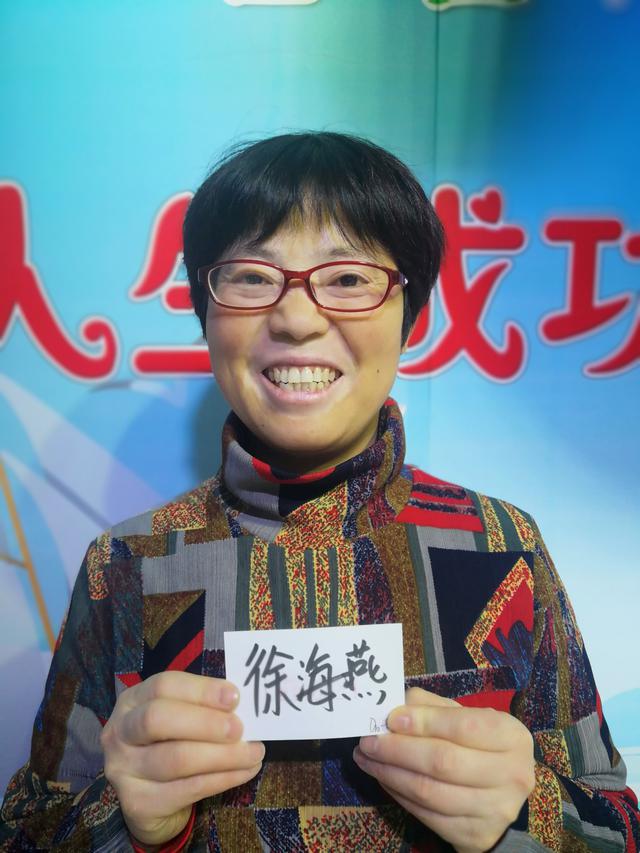 人生成功
徐海燕